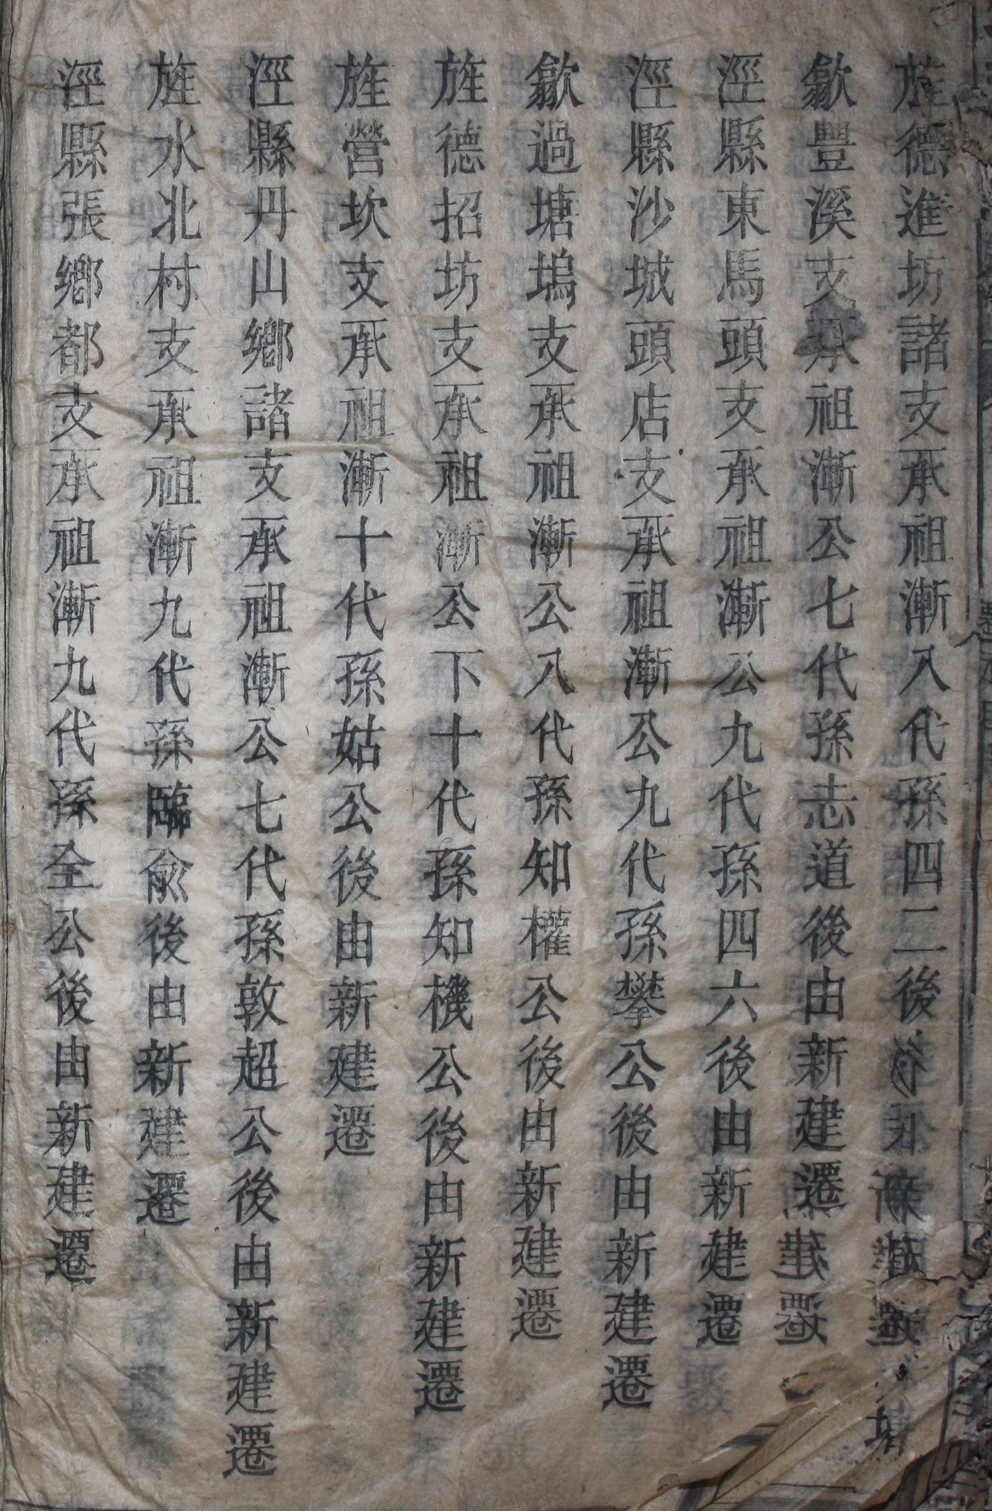 旌德進坊諸支承祖漸八代孫四二後
歙豐溪支承祖漸公七代孫志道後由新建遷
涇縣東馬頭支承祖漸公九代孫四六後由新建遷
涇縣沙城頭店支承祖漸公九代孫攀公後由新建遷
歙過塘塢支承祖漸公八代孫知權公後由新建遷
旌德招坊支承祖漸公下十代孫知機公後由新建遷
旌營坎支承祖漸十代孫姑公後由新建遷
涇縣丹山鄉諸支承祖漸公七代孫敦超公後由新建遷
旌水北村支承祖漸九代孫臨兪後由新建遷
涇縣張鄉都支承祖漸九代孫全公後由新建遷